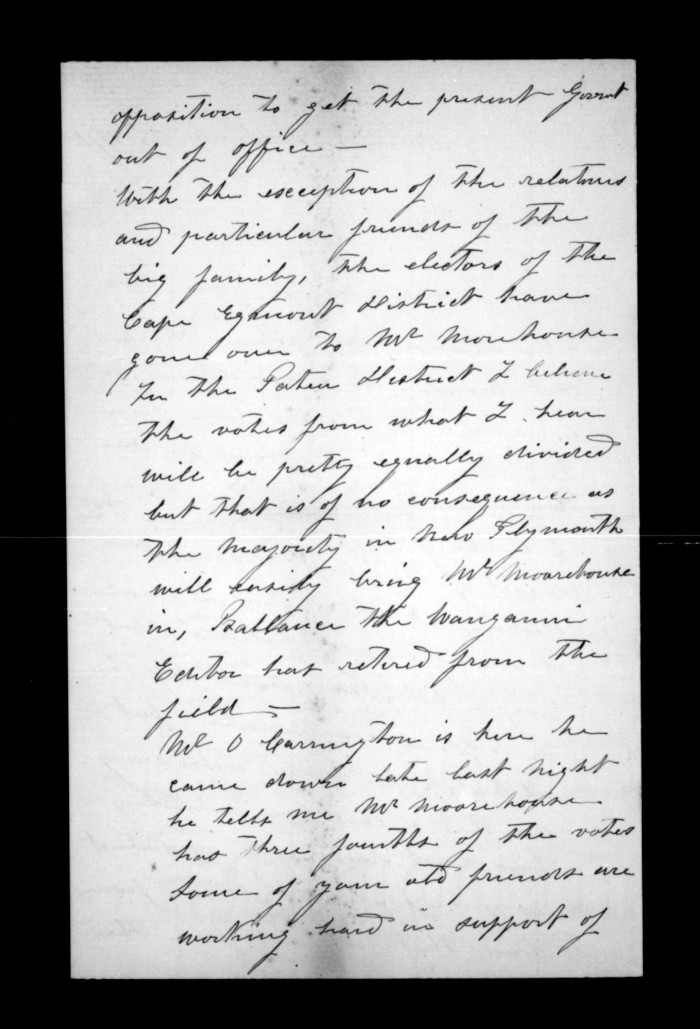 opposition to get the present Govrnt
out of office —
With the exception of the relations
and particular friends of the
big family, the electors of the
Cape Egmont District have
gone over to Mr Morehouse
In the Patea District I believe
the votes from what I hear
will be pretty equally divided
but that is of no consequence as
the majority in New Plymouth
will easily bring Mr Moorehouse
in, Ballance the Wanganui
Editor has retired from the
field —
Mr O Carrington is here he
came down late last night
he tells me Mr Moorehouse
has three fourths of the votes
Some of your old friends are
working hard in support of